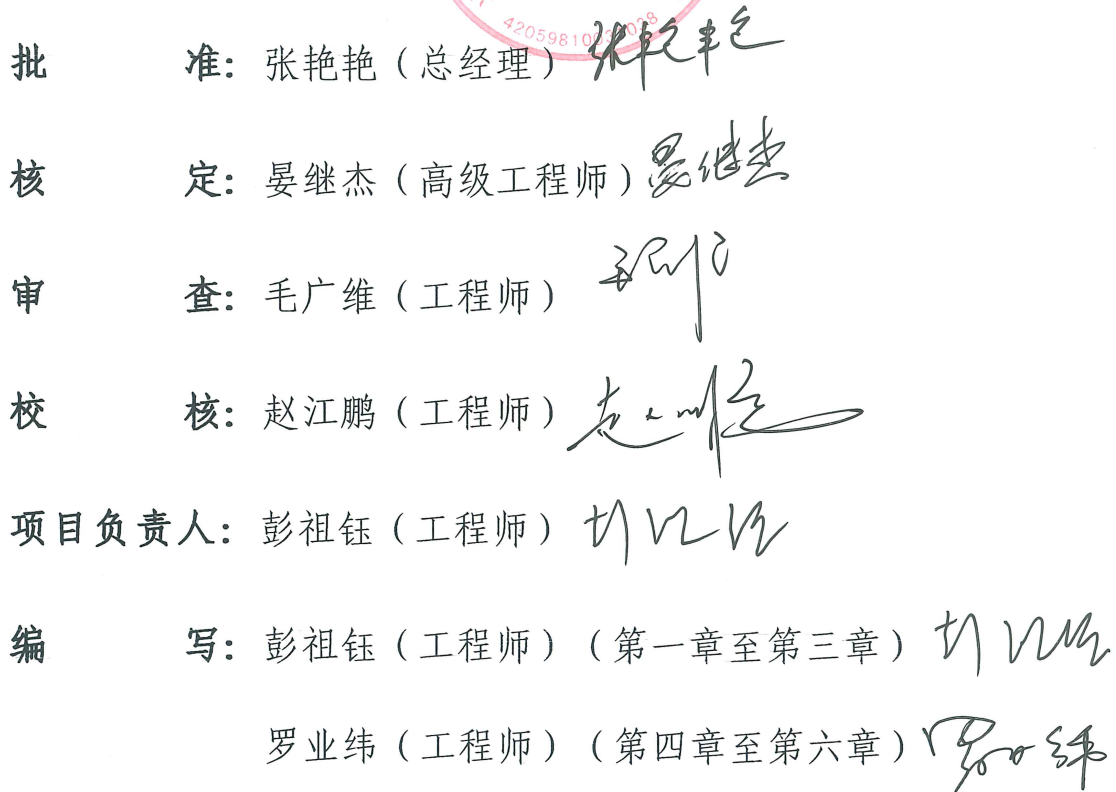 批准：张艳艳（总经理）张艳艳
核定：晏继杰（高级工程师）晏继杰
审查：毛广维（工程师）
校核：赵江鹏（工程师）
项目负责人：彭祖钰（工程师）
编写：彭祖钰（工程师）（第一章至第三章）
罗业纬（工程师）（第四章至第六章）